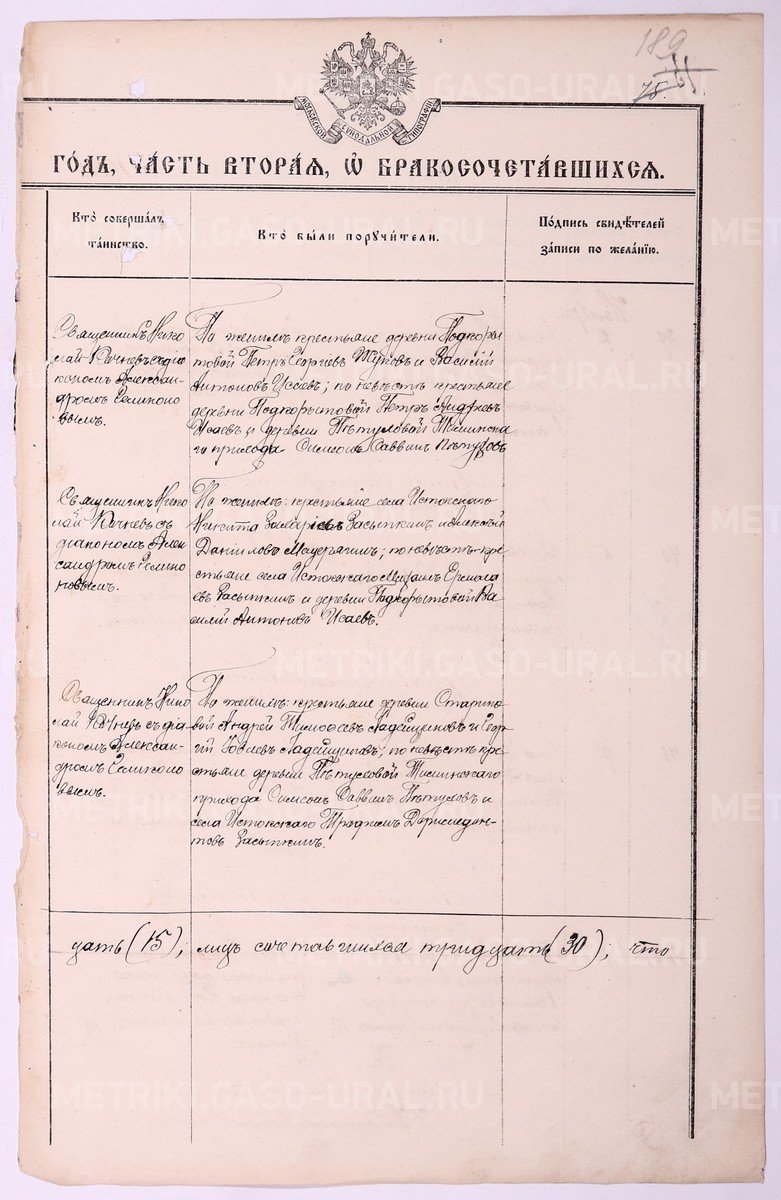 189
75
МОСКОВСКОЙ СѴНОДАЛЬНОЙ ТИПОГРАФІИ
ГО́ДЪ, ЧА́СТЬ ВТОРА́Я, Ѡ҆ БРАКОСОЧЕТА́ВШИХСЯ.
Кто̀ соверша́лъ
та́инство.
Кто̀ бы́ли пору́чи́тели.
По́дпись свидѣ́телей
за́писи по жела́нію.
Священникъ Нико
лай Кочневъ съ діа
кономъ Алексан
дромъ Селионо
вымъ.
По женихѣ крестьяне деревни Подкоры
товой Петръ Георгіевъ Жуковъ и Василій
Антоновъ Исаевъ; по невѣстѣ крестьяне
деревни Подкорытовой Петръ Андреевъ
Исаевъ и деревни Пѣтуховой
го прихода Симеонъ Саввинъ Пѣтуховъ
Священникъ Нико
лай Кочневъ съ
діакономъ Алек
сандромъ Селио
новымъ.
По женихѣ: крестьяне села Истокскаго
Никита Захаровъ Засыпкинъ и
Даниловъ; по невѣстѣ кре
стьяне села Истокскаго Ермола
евъ Засыпкинъ и деревни Подкорытовой Ва
силій Антоновъ Исаевъ.
Священникъ Нико
лай Кочневъ съ діа
кономъ Алексан
дромъ Селионо
вымъ.
По женихѣ: крестьяне деревни Старико
вой Андрей Тимофеевъ Ладейщиковъ и Геор
гій Ладейщиковъ; по невѣстѣ кре
стьяне деревни Пѣтуховой
прихода Симеонъ Саввинъ Пѣтуховъ и
села Истокскаго Трофимъ Дормедон
товъ Засыпкинъ.
цать (15), лицъ сочетавшихся тридцать (30); что
METRIKI.GASO-URAL.RU